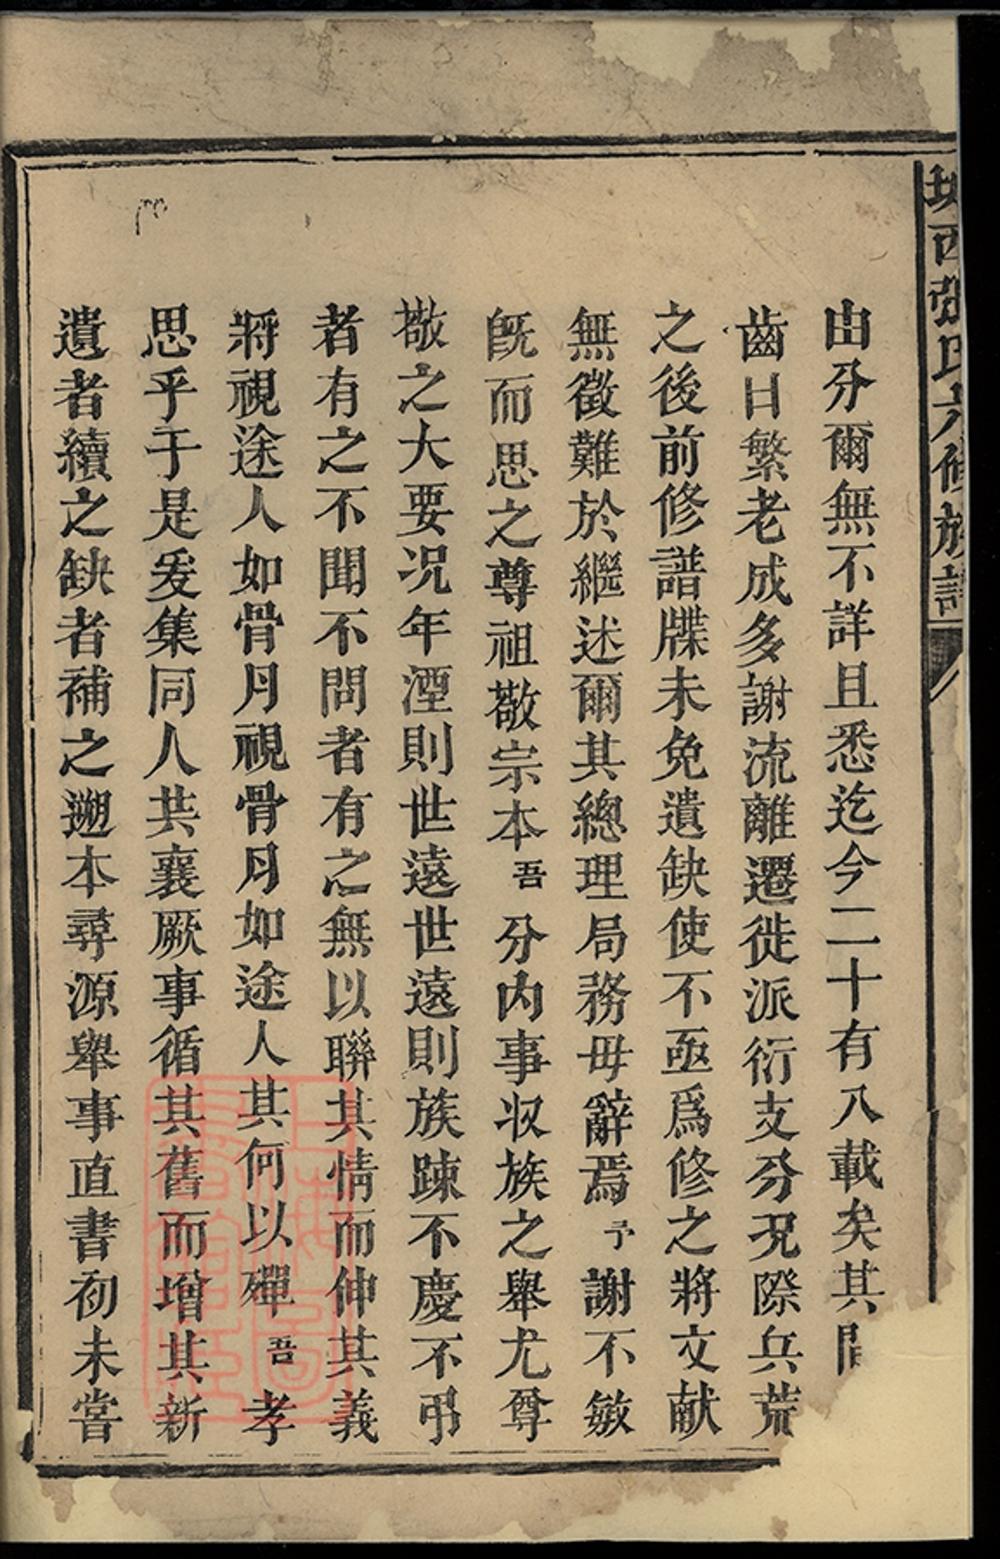 城西張氏六修族譜
由分爾無不詳且悉迄今二十有八載矣其間
齒日繁老成多謝流離遷徙派衍支分況際兵荒
之後前修譜牒未免遺缺使不亟爲修之將文献
無徵難於繼述爾其總理局務毋辭焉予謝不敏
旣而思之尊祖敬宗本吾分內事收族之舉尤尊
敬之大要况年湮則世遠世遠則族踈不慶不弔
者有之不聞不問者有之無以聯其情而伸其義
將視途人如骨月視骨月如途人其何以殫吾孝
思乎于是爰集同人共襄厥事循其舊而增其新
遺者續之缺者補之遡本尋源舉事直書初未嘗